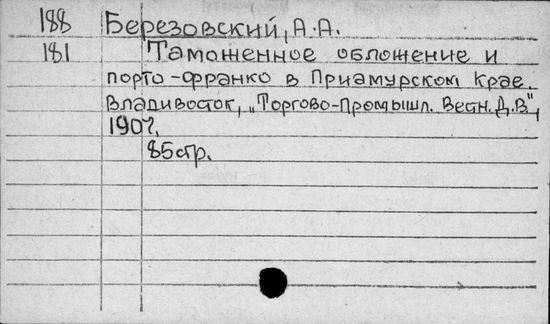 188 Березовский, А.А.
181 Таможенное обложение и
порто-франко в Приамурском крае.
Владивосток, "Торгово-Промышл. Вестн. Д.В",
1907.
85стр.